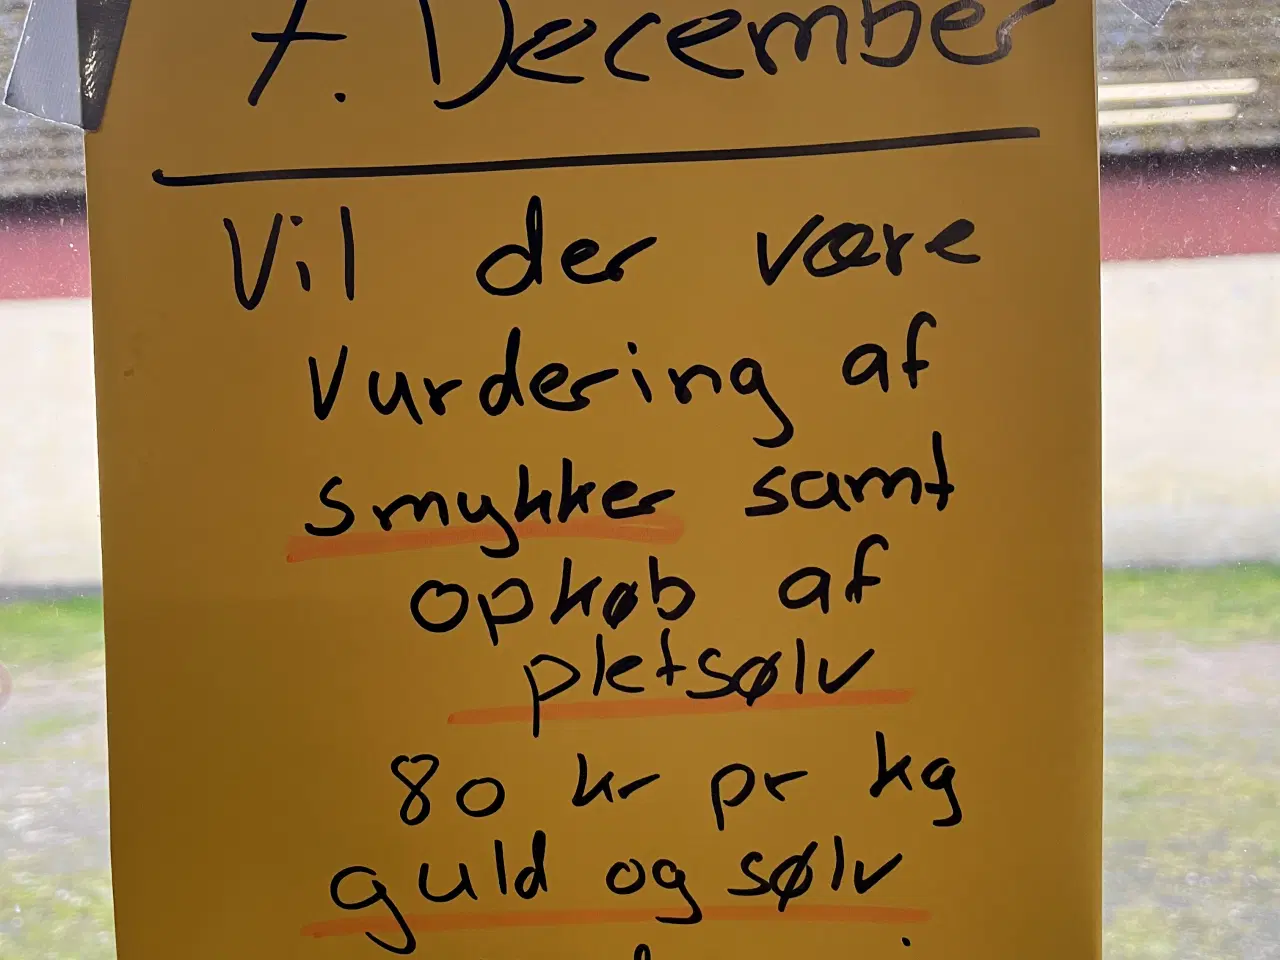 7. December
Vil der være
vurdering af
smykker samt
opkøb af
pletsølv
80 kr pr kg
guld og sølv